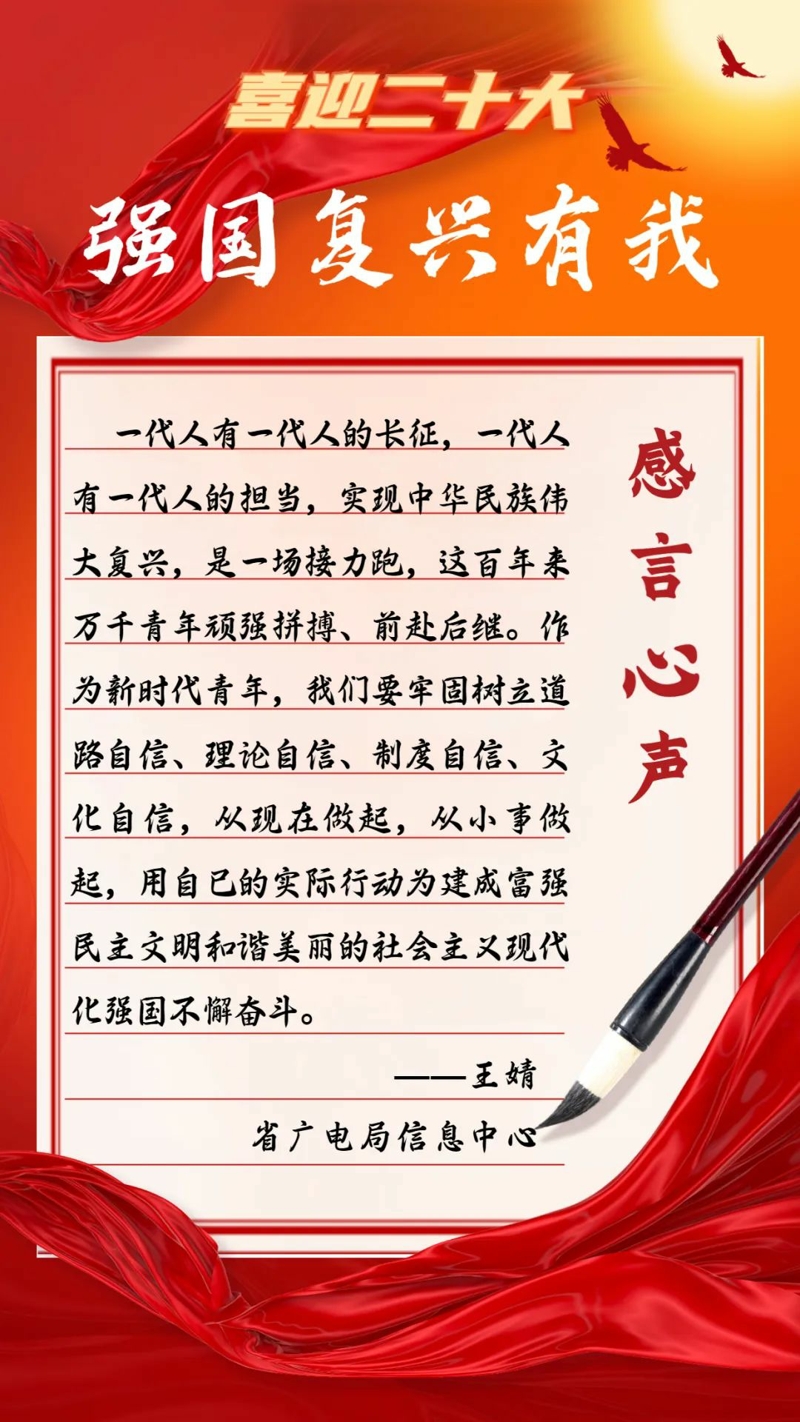 喜迎二十大
强国复兴有我
感言心声
一代人有一代人的长征，一代人
有一代人的担当，实现中华民族伟
大复兴，是一场接力跑，这百年来
万千青年顽强拼搏、前赴后继。作
为新时代青年，我们要牢固树立道
路自信、理论自信、制度自信、文
化自信，从现在做起，从小事做
起，用自已的实际行动为建成富强
民主文明和谐美丽的社会主义现代
化强国不懈奋斗。
——王婧
省广电局信息中心